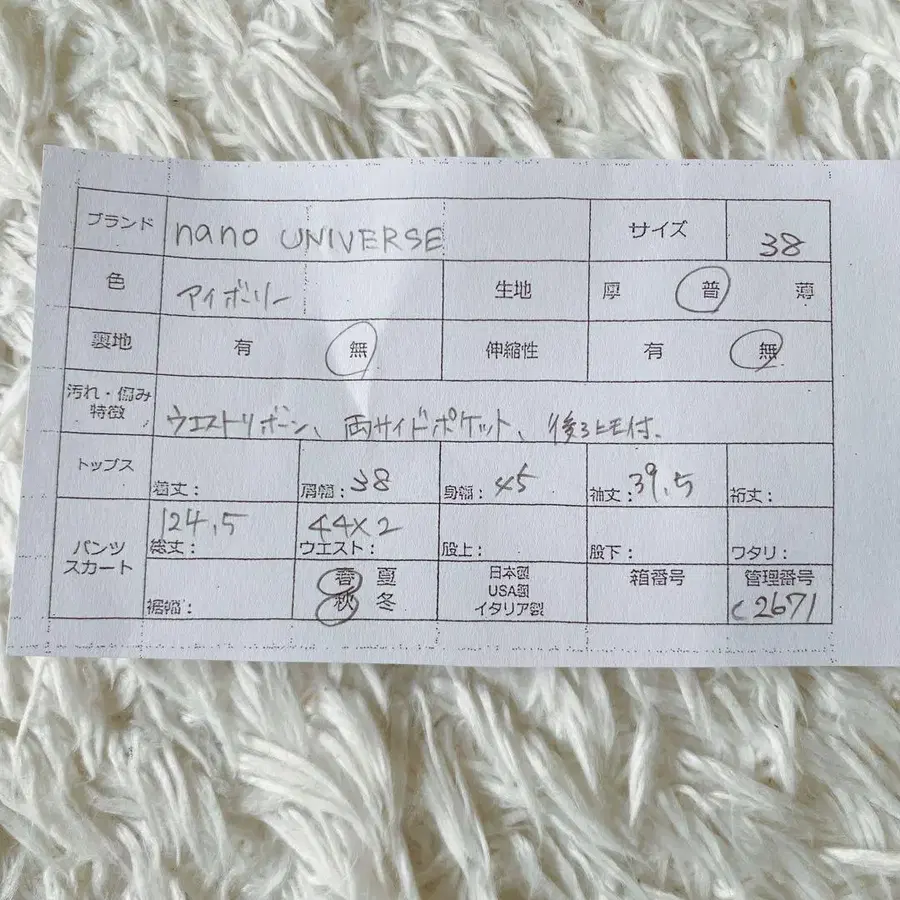 ブランド nano UNIVERSE サイズ 38
色 アイボリー 生地 厚 普 薄
裏地 有 無 伸縮性 有 無
汚れ・傷み
特徴 ウエストリボーン、両サイドポケット、後ろヒモ付.
トップス 着丈: 肩幅:38 身幅:45 袖丈:39.5 裄丈:
パンツ
スカート 124.5 44×2
総丈: ウエスト: 股上: 股下: ワタリ:
裾幅: 春 夏 日本製 箱番号 管理番号
秋 冬 USA製 C2671
イタリア製